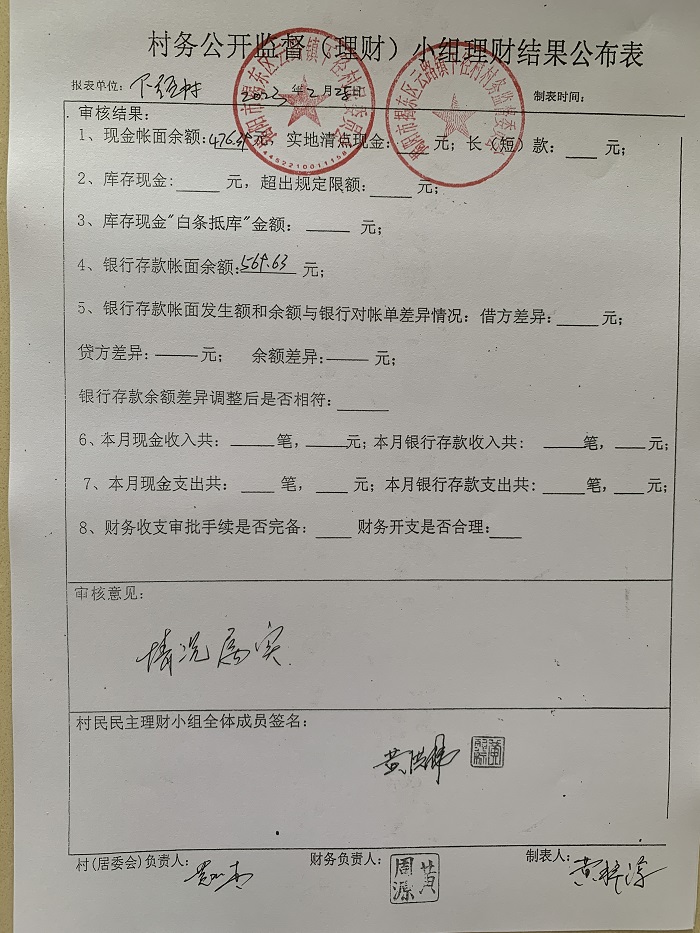 村务公开监督（理财）小组理财结果公布表
报表单位：下径村 2023年2月28日 制表时间：
审核结果：
1、现金帐面余额：476.4元，实地清点现金：___元；长（短）款：___元；
2、库存现金：____元，超出规定限额：____元；
3、库存现金"白条抵库"金额：____元；
4、银行存款帐面余额：569.63元；
5、银行存款帐面发生额和余额与银行对帐单差异情况：借方差异：____元；
贷方差异：____元； 余额差异：____元；
银行存款余额差异调整后是否相符：_____
6、本月现金收入共：____笔，____元；本月银行存款收入共：____笔，___元；
7、本月现金支出共：___笔，___元；本月银行存款支出共：____笔，___元；
8、财务收支审批手续是否完备：___ 财务开支是否合理：___
审核意见：
情况属实
村民民主理财小组全体成员签名：
黄
村(居委会)负责人：
财务负责人：
黄周源
制表人：
黄